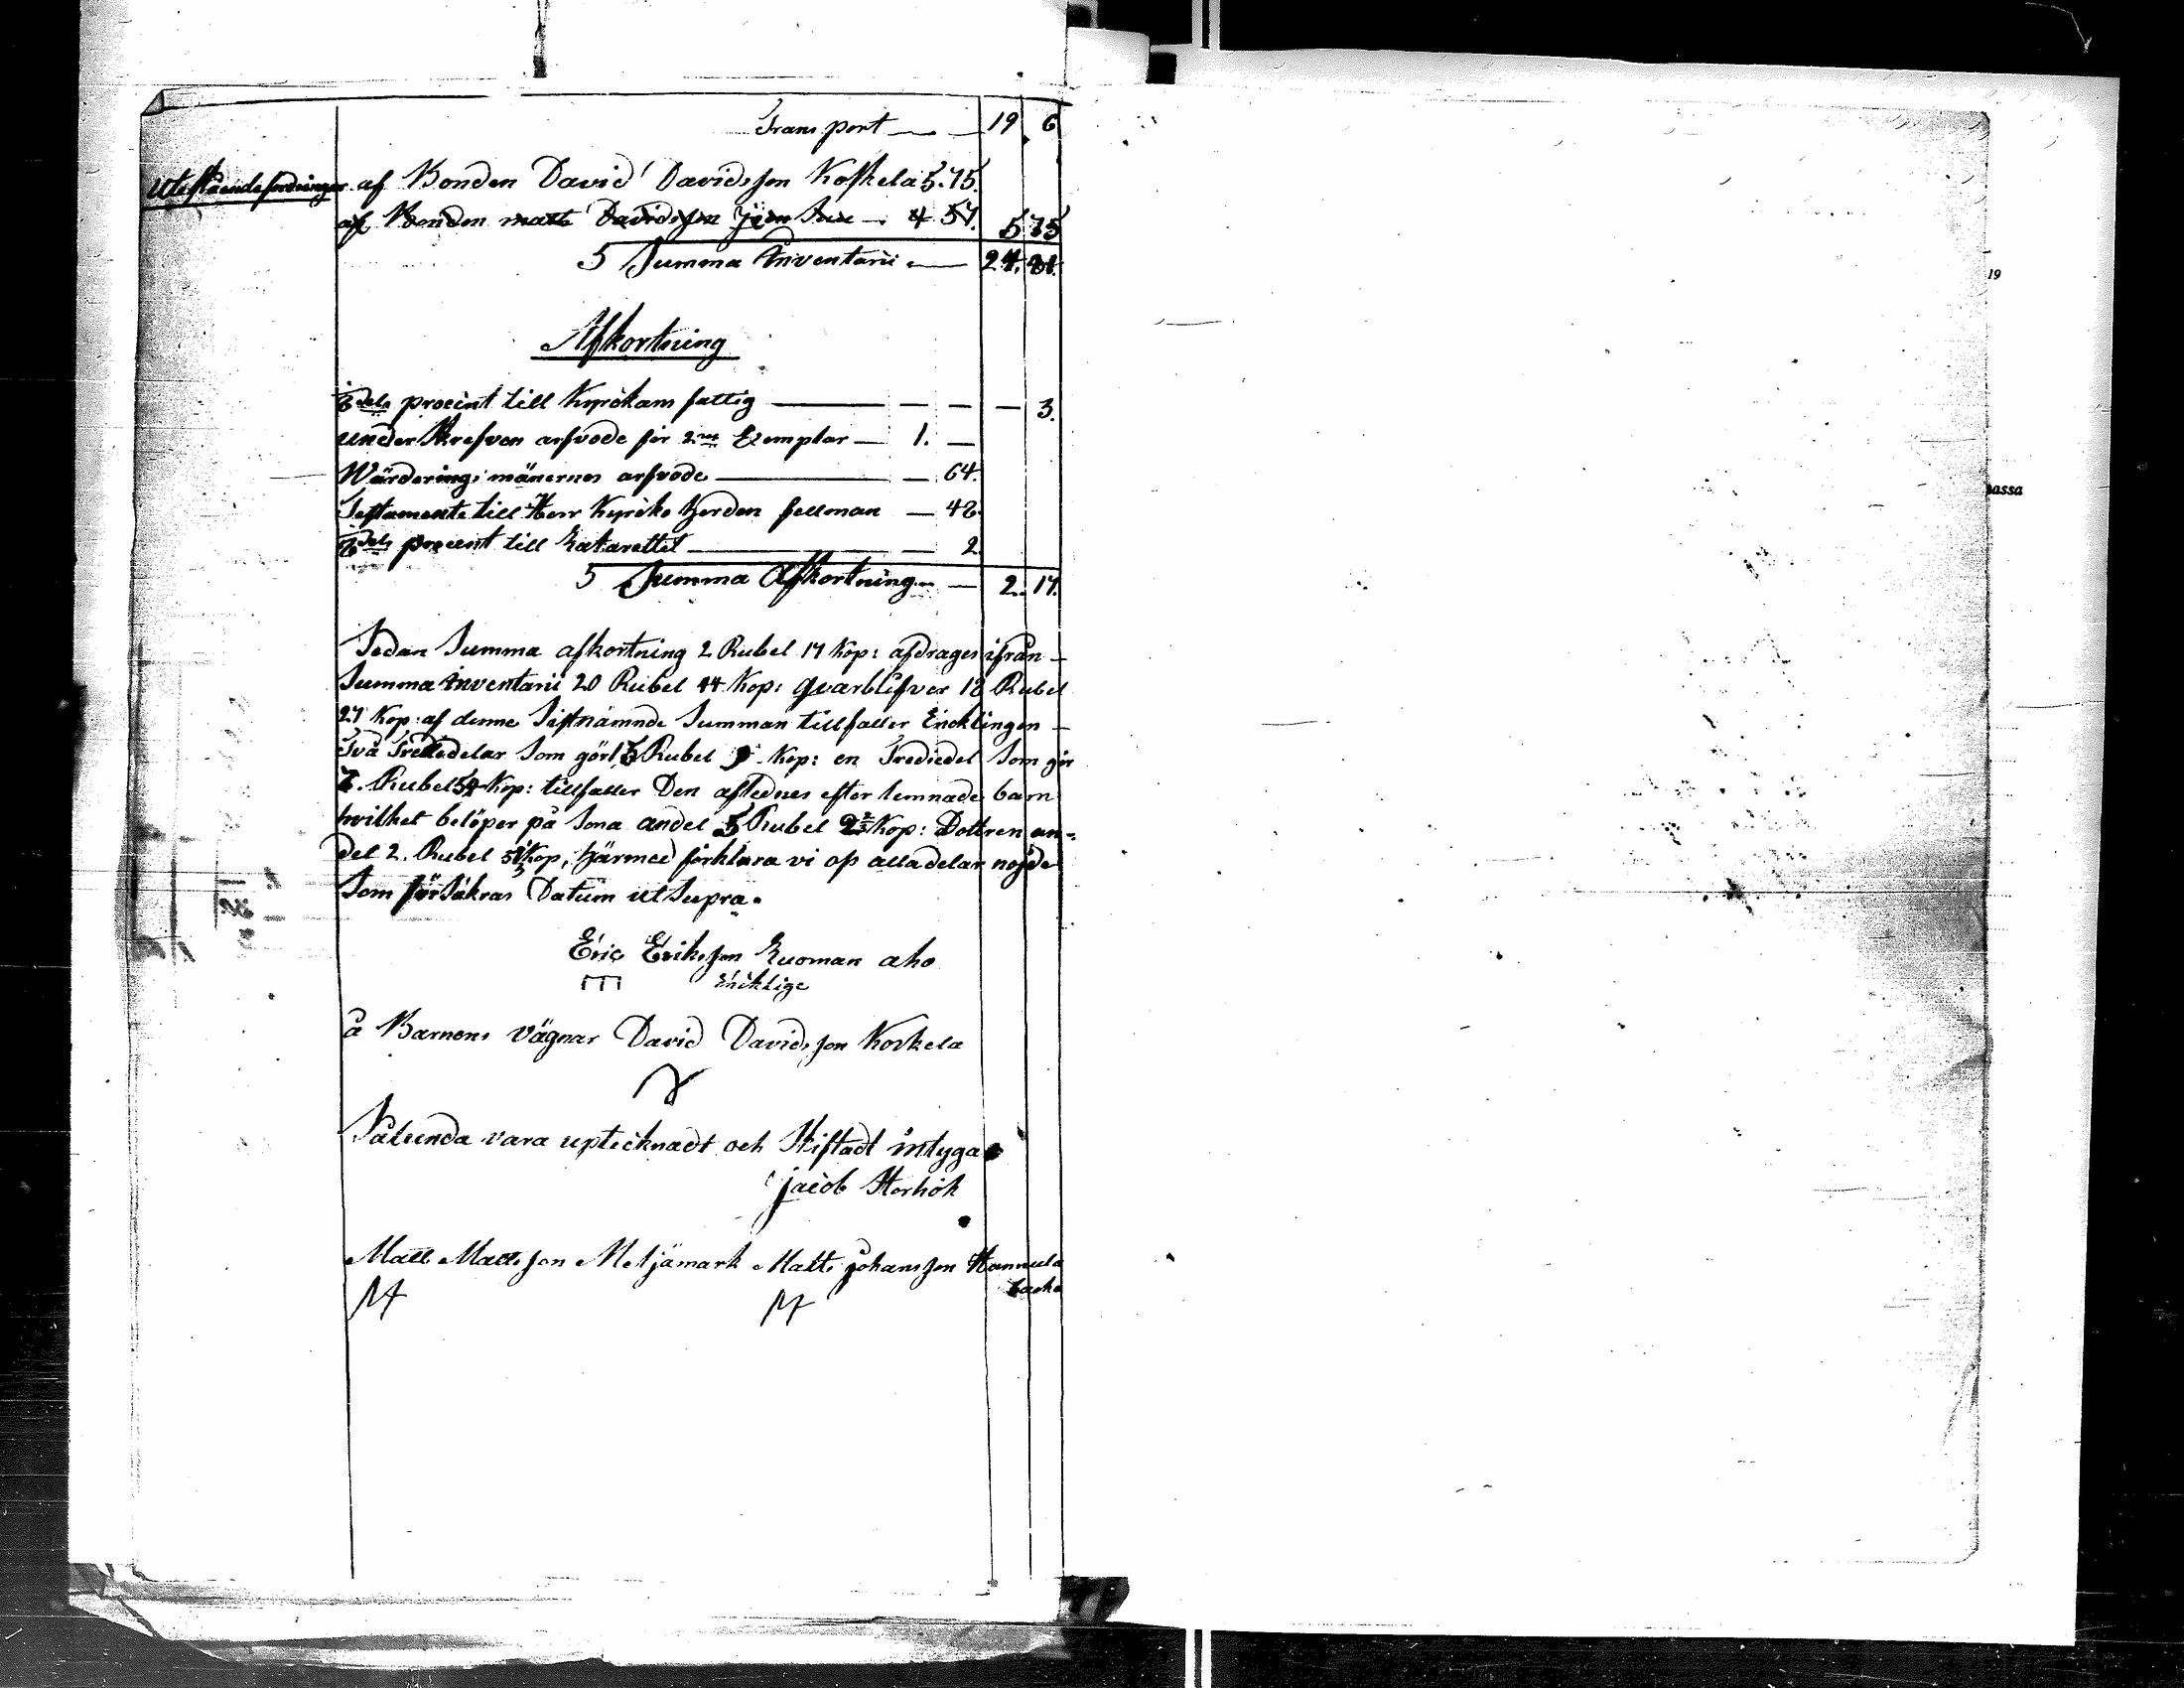 Transport — — 19 6
Utestående fordringar af Bonden David Davidsson Koskela 5. 75.
af Bonden Matts Davidsson — 4 57. 5 75
S Summa Inventarii — 24. 81.
Afkortning
dels procent till Kyrckans fattig — — — — 3.
underskrefven arfvode för 2ne Exemplar — 1. —
Wärderings mänernes arfvode — — 64.
Testamente till Herr Kyrcko Herden Fellman — 48
dels procent till Lazarettet — — 2
S Summa Afkortning — 2. 17.
Sedan Summa afkortning 2 Rubel 17 Kop: afdrages ifrån —
Summa inventarii 20 Rubel 44 Kop: qvarblifver 18 Rubel
27 Kop: af denne Sistnämnde Summan tillfaller Encklingen —
Två Trediedelar Som gör 15 Rubel 9 Kop: en Trediedel Som gör
7. Rubel 54 Kop: tillfaller Den aflednes efter lemnade barn
hvilket belöper på Sona andel 5 Rubel 2⅔ Kop: Dottren an=
del 2. Rubel 51⅓ Kop, härmed förklara vi oss alla delar nöjde
Som försäkras Datum ut Supra.
Eric Eriksson Luoman aho
Encklige
å Barnens vägnar David Davidsson Koskela
Sålunda vara uptecknadt och Skiftadt intyga
Jacob Storhök
Matts Mattsson Metjämark Matts Johansson Hannula
backa
19
assa